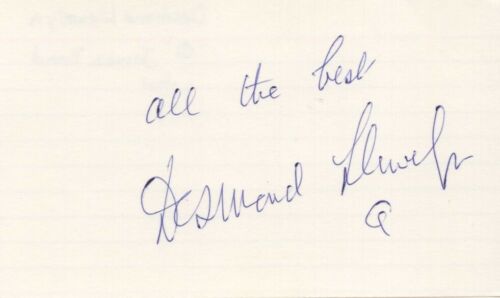 all the best
Desmond Llewelyn
Q